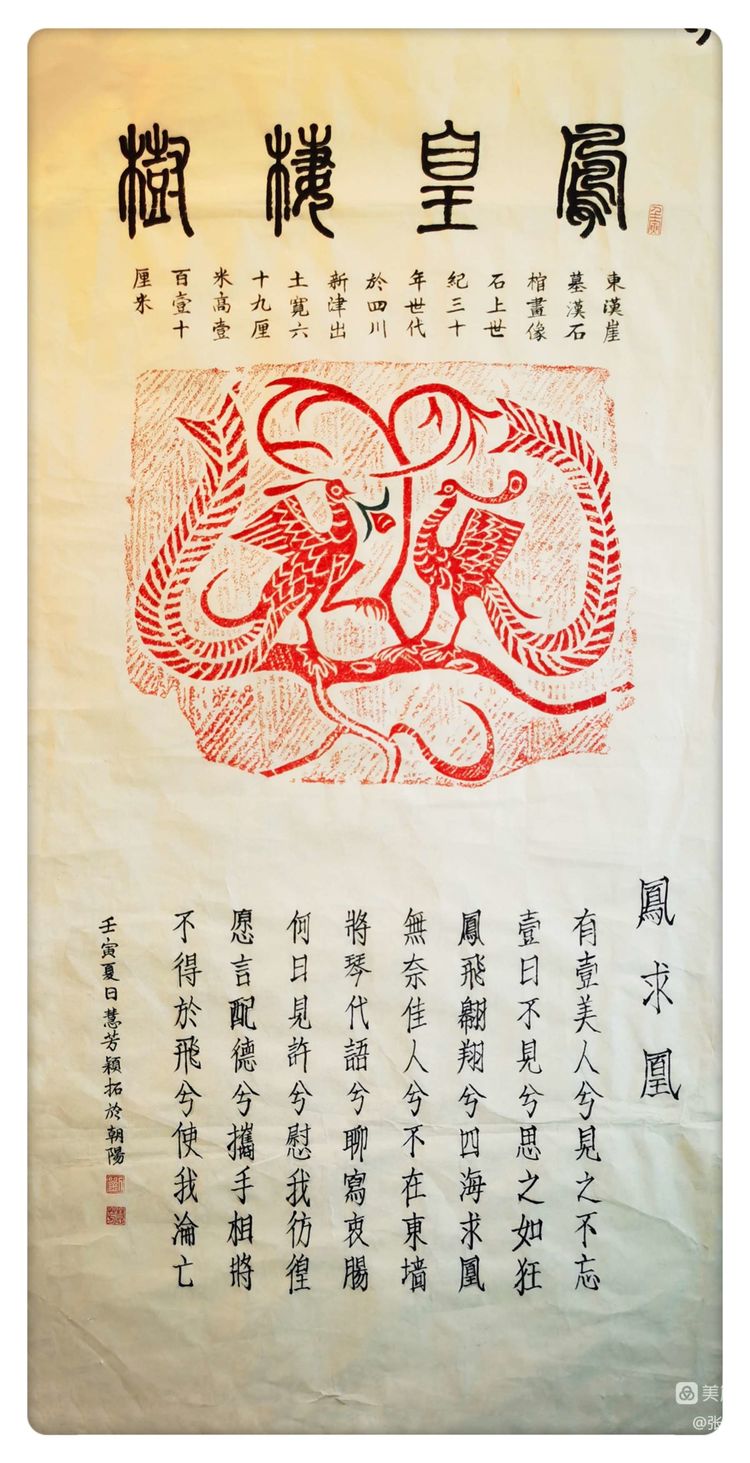 鳳皇棲樹
東漢崖
墓漢石
棺畫像
石上世
紀三十
年世代
於四川
新津出
土寬六
十九厘
米高壹
百壹十
厘米
鳳求凰
有壹美人兮見之不忘
壹日不見兮思之如狂
鳳飛翱翔兮四海求凰
無奈佳人兮不在東墙
將琴代語兮聊寫衷腸
何日見許兮慰我彷徨
愿言配德兮攜手相將
不得於飛兮使我淪亡
壬寅夏日慧芳穎拓於朝陽
美
@张